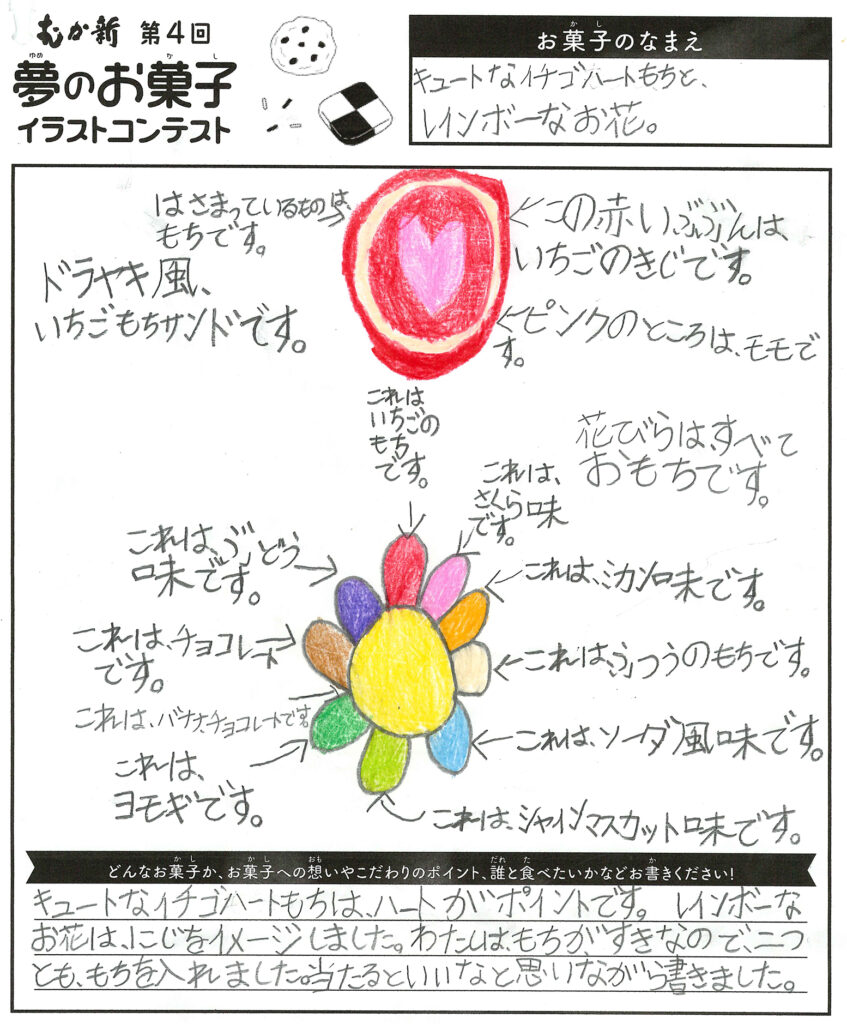 むか新 第4回
夢のお菓子
イラストコンテスト
お菓子のなまえ
キュートなイチゴハートもちと、
レインボーなお花。
はさまっているものは、
もちです。
この赤いぶぶんは、
いちごのきじです。
ドラヤキ風、
いちごもちサンドです。
ピンクのところは、モモで
す。
これは
いちごの
もち
です。
花びらは、すべて
おもちです。
これは、
さくら味
です。
これは、ぶどう
味です。
これは、ミカン味です。
これは、チョコレート
です。
これは、ふつうのもちです。
これは、バナナ、チョコレートです。
これは、ソーダ風味です。
これは、
ヨモギです。
これは、シャインマスカット味です。
どんなお菓子か、お菓子への想いやこだわりのポイント、誰と食べたいかなどお書きください!
キュートなイチゴハートもちは、ハートがポイントです。 レインボーな
お花は、にじをイメージしました。わたしは、もちがすきなので、二つ
とも、もちを入れました。当たるといいなと思いながら書きました。